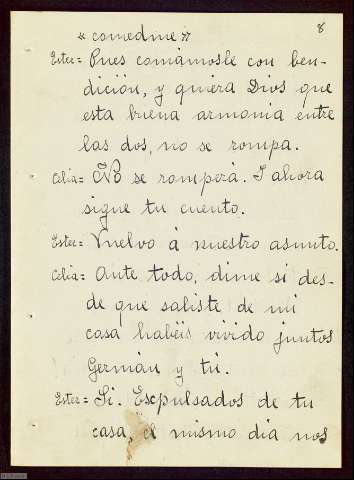 8
« comedme »
Ester= Pues comámosle con ben-
dición, y quiera Dios que
esta buena armonia entre
las dos, no se rompa.
Celia= No se romperá. Y ahora
sigue tu cuento.
Ester= Vuelvo á nuestro asunto.
Celia= Ante todo, dime si des-
de que saliste de mi
casa habéis vivido juntos
Germán y tú.
Ester= Si. Expulsados de tu
casa, el mismo dia nos